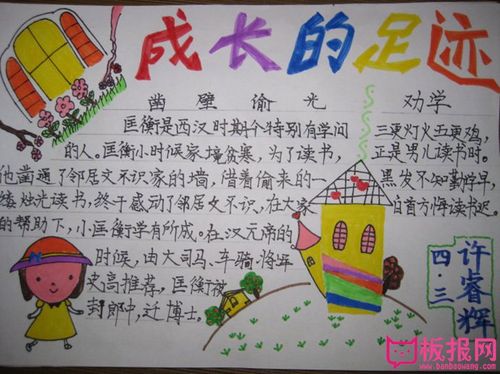 成长的足迹
凿壁偷光
匡衡是西汉时期个特别有学问
的人。匡衡小时候家境贫寒，为了读书，
他凿通了邻居文不识家的墙，借着偷来的一
缕烛光读书，终于感动了邻居文不识，在大家
的帮助下，小匡衡学有所成。在汉元帝的
时候，由大司马、车骑·将军
史高推荐，匡衡被
封郎中，迁博士。
劝学
三更灯火五更鸡，
正是男儿读书时。
黑发不知勤学早，
白首方悔读书迟。
四·三
许睿辉
板报网
www.banbaowang.com